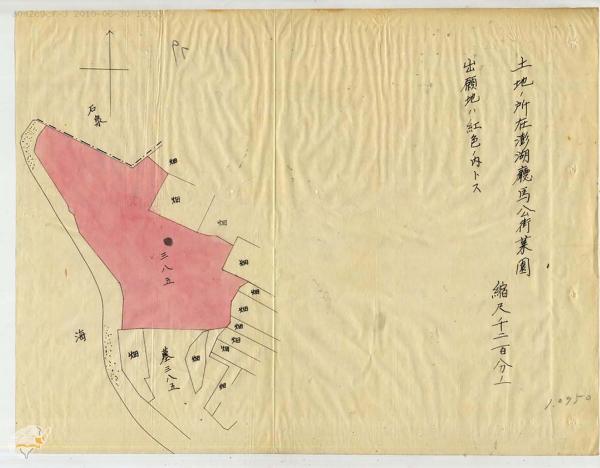 土地ノ所在澎湖廳馬公街菜園
縮尺千二百分ノ一
出願地ハ紅色ノ内トス
畑
畑
畑
畑
三八五
海
畑
畑
畑
畑
畑
畑
畑
畑
墓三八五
1.0950